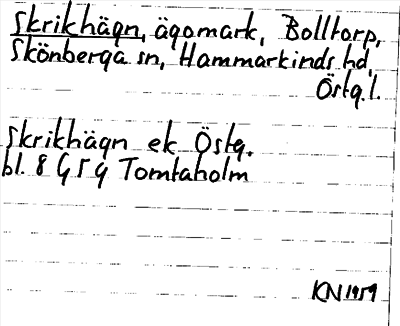 Skrikhägn, ägomark, Bolltorp,
Skönberga sn, Hammarkinds hd,
Östg.l.
Skrikhägn ek Östg.
bl. 8 G 5 g Tomtaholm
KN 1959